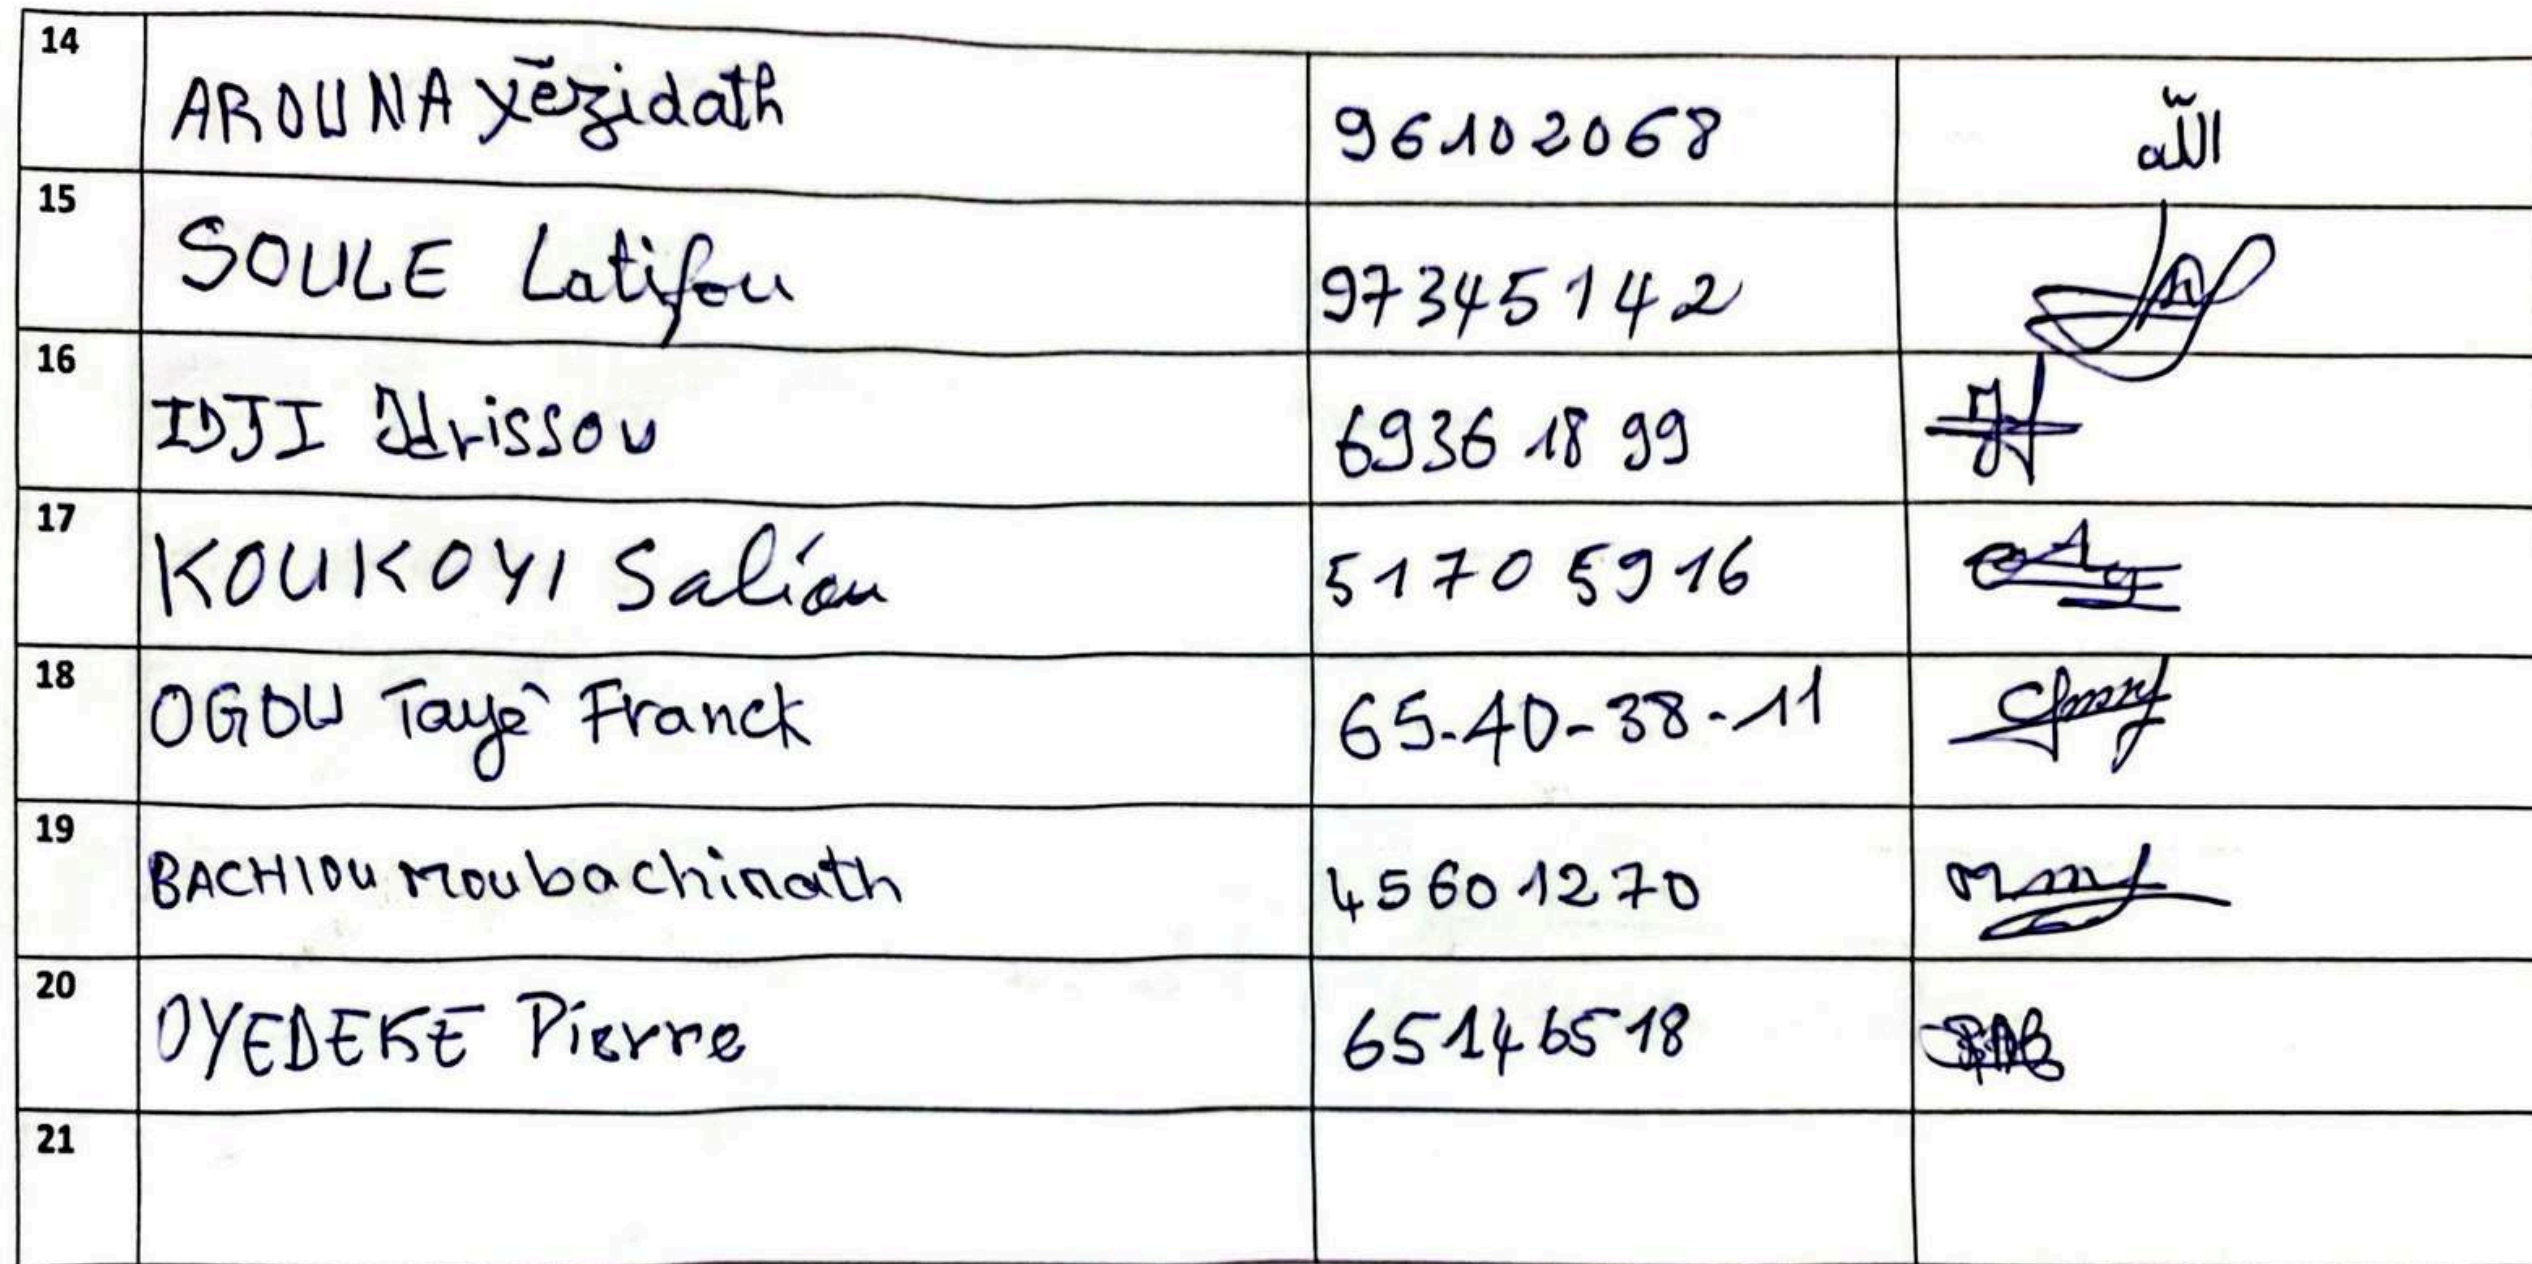 14 AROUNA Yézidath 96102068 الله
15 SOULE Latifou 97345142
16 IDJI Idrissou 6936 18 99
17 KOUKOYI Saliou 5170 5916
18 OGOU Tayé Franck 65-40-38-11
19 BACHIOU Moubachinath 45601270
20 OYEDEKE Pierre 65146518
21